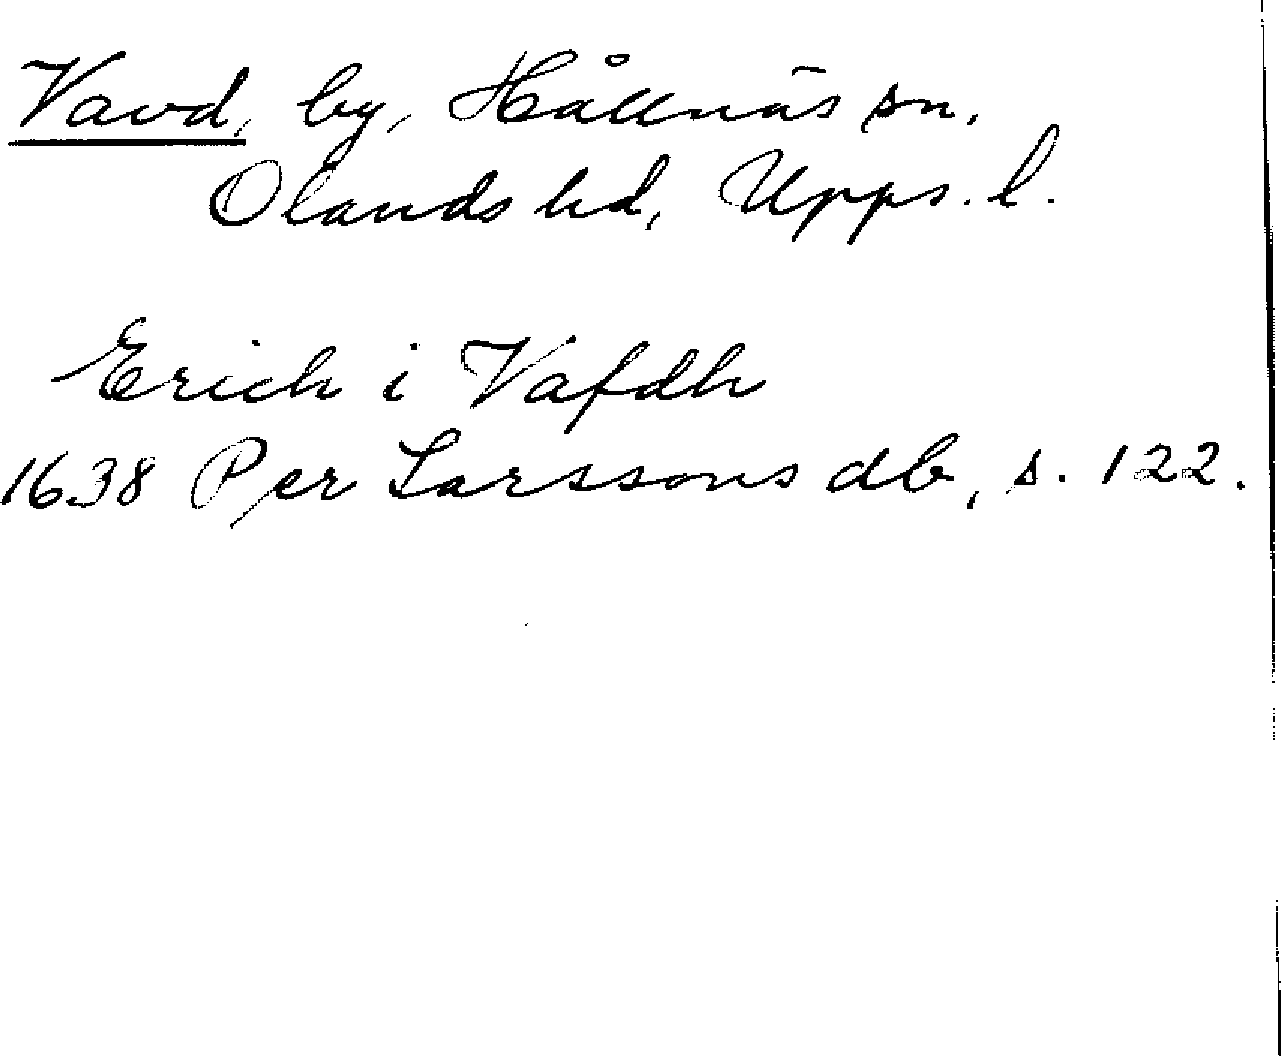 Vavd, by, Hållnäs sn.
Olands hd, Upps. l.
Erich i Vafdh
1638 Per Larssons db, s. 122.